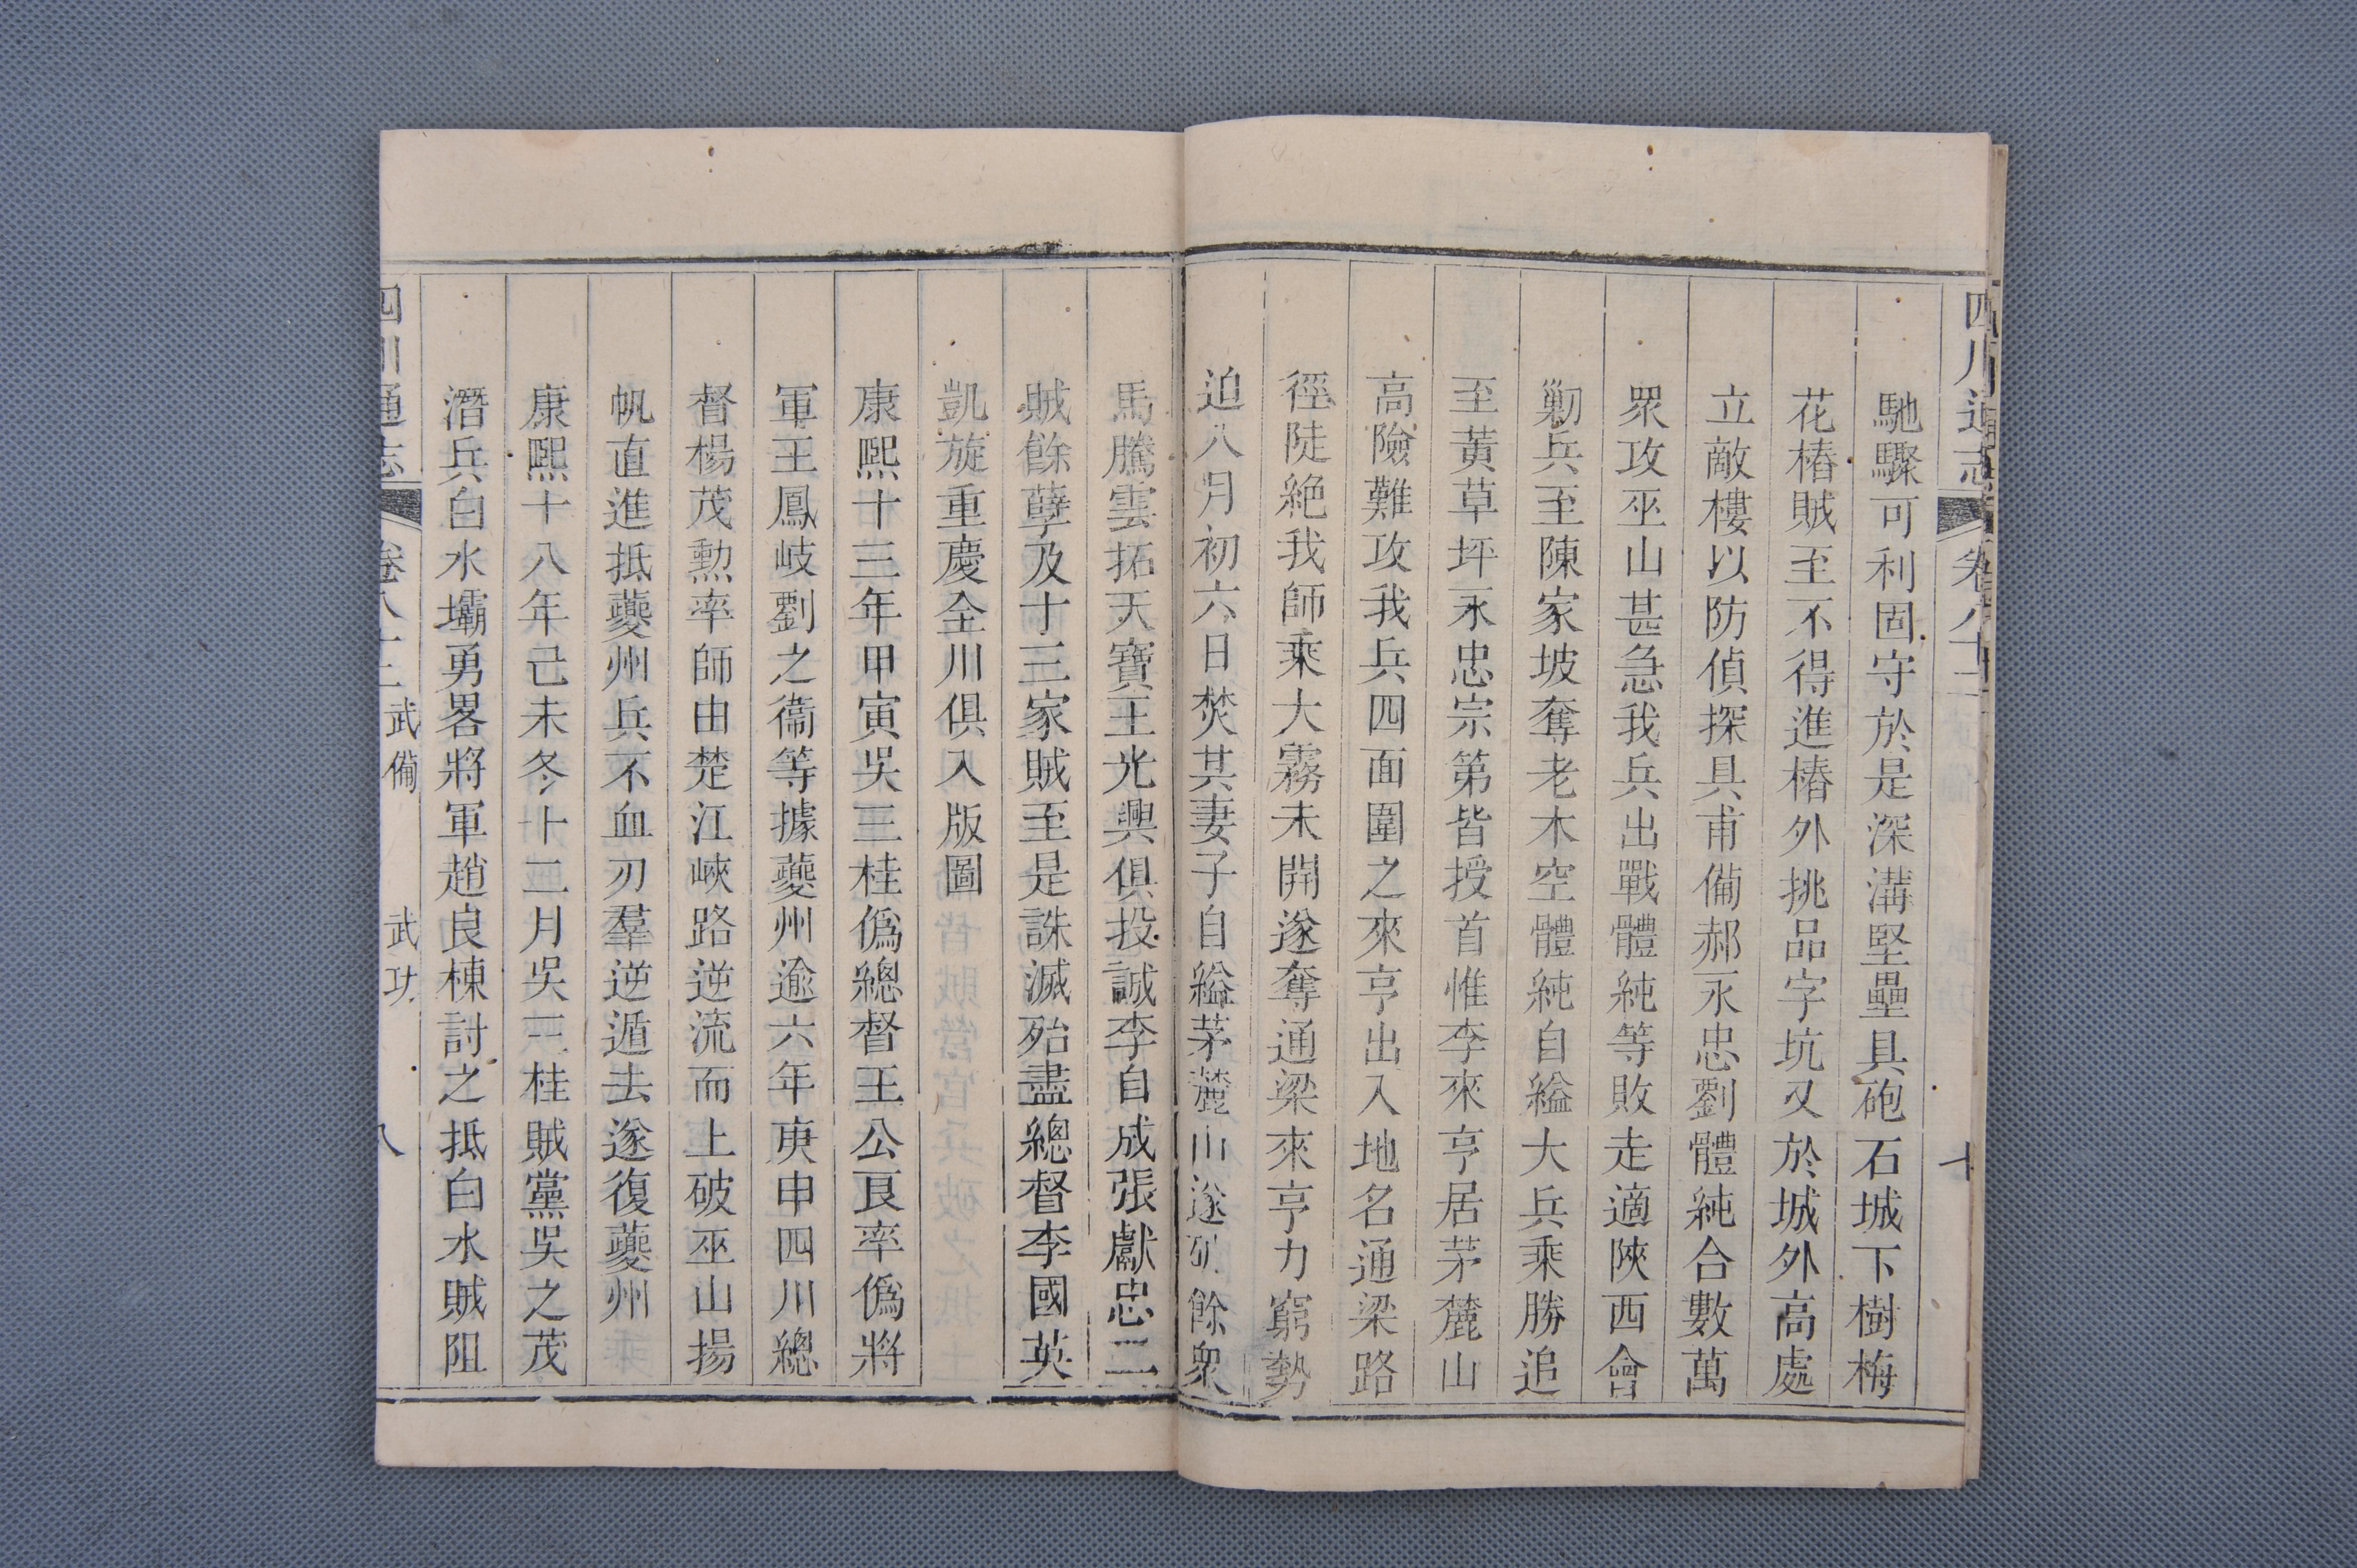 四川通志 卷八十二 七
馳驟可利固守於是深溝堅壘具砲石城下樹梅
花樁賊至不得進樁外挑品字坑又於城外高處
立敵樓以防偵探具甫備郝永忠劉體純合數萬
眾攻巫山甚急我兵出戰體純等敗走適陝西會
勦兵至陳家坡奪老木空體純自縊大兵乘勝追
至黃草坪永忠宗第皆授首惟李來亨居茅麓山
高險難攻我兵四面圍之來亨出入地名通梁路
徑陡絕我師乘大霧未開遂奪通梁來亨力窮勢
迫八月初六日焚其妻子自縊茅麓山遂破餘衆
馬騰雲拓天寶王光興俱投誠李自成張獻忠二
賊餘孽及十三家賊至是誅滅殆盡總督李國英
凱旋重慶全川俱入版圖
康熙十三年甲寅吳三桂僞總督王公良率僞將
軍王鳳岐劉之衞等據夔州逾六年庚申四川總
督楊茂勲率師由楚江峽路逆流而上破巫山揚
帆直進抵夔州兵不血刃羣逆遁去遂復夔州
康熙十八年己未冬十二月吳三桂賊黨吳之茂
潛兵白水壩勇畧將軍趙良棟討之抵白水賊阻
四川通志 卷八十二 武備 武功 八